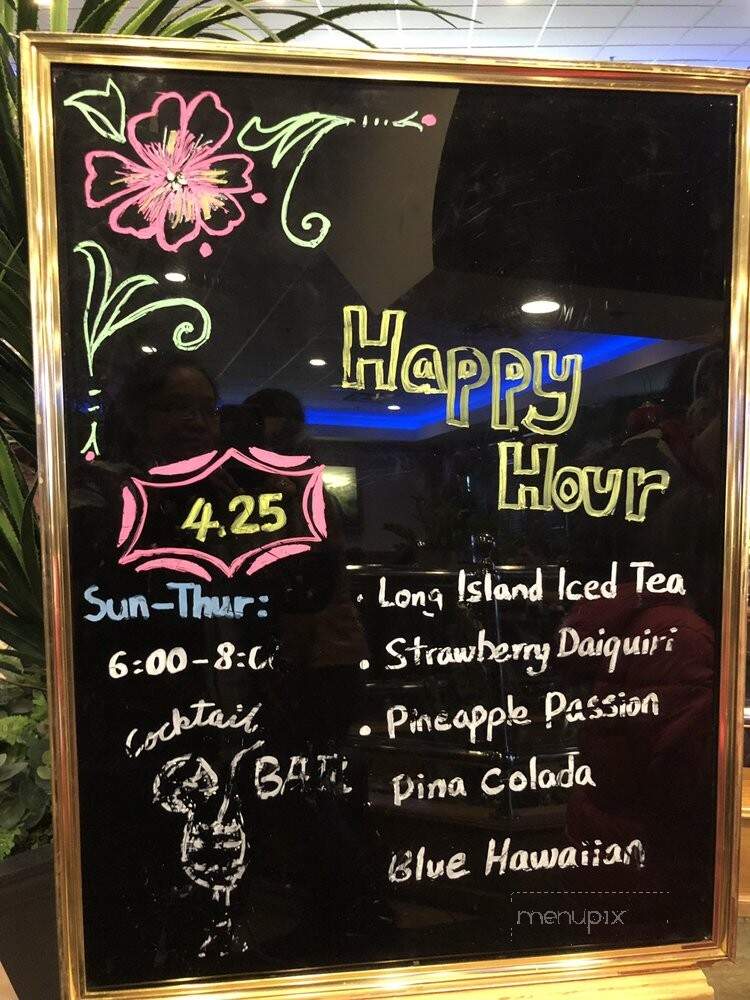 Happy
Hour
4.25
Sun-Thur:
6:00-8:0
Cocktail
BAR
• Long Island Iced Tea
• Strawberry Daiquiri
• Pineapple Passion
Pina Colada
Blue Hawaiian
menupix